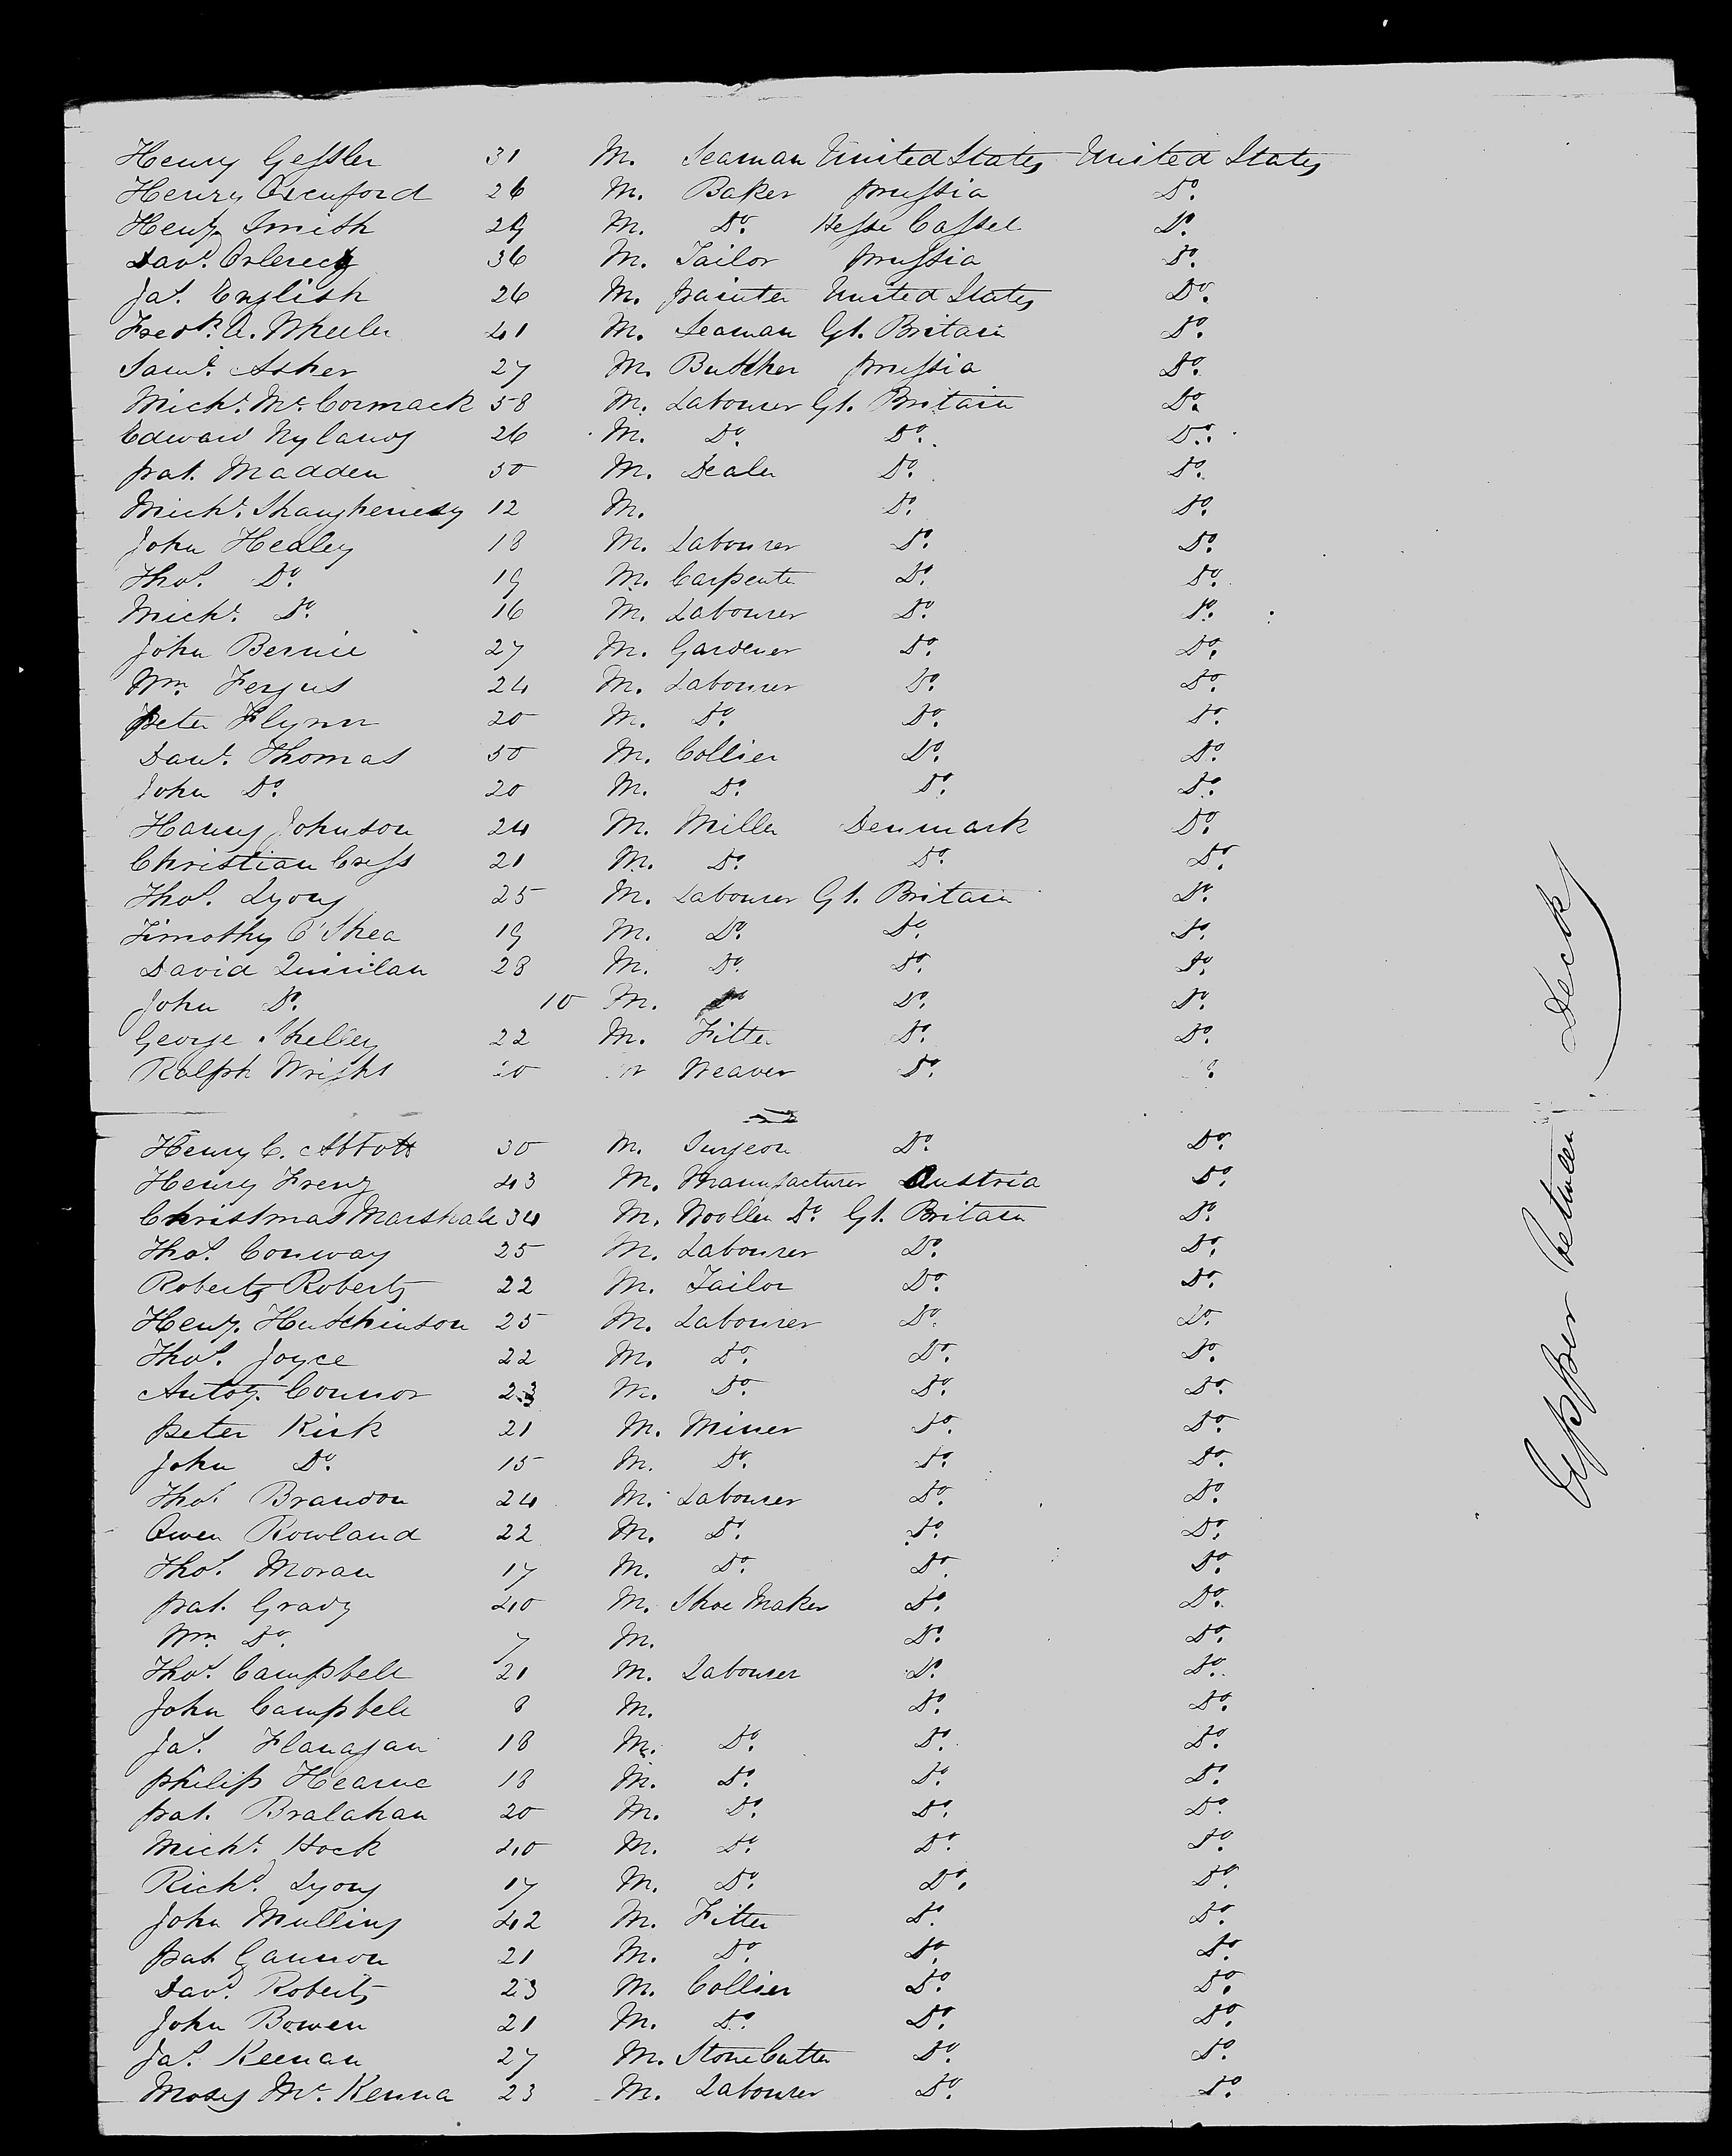 Henry Gessler 31 M. Seaman United States United States
Henry Oxenford 26 M. Baker Prussia Do.
Heny. Smith 29 M. Do. Hesse Cassel Do.
Davd. 36 M. Tailor Prussia Do.
Jas. English 26 M. Painter United States Do.
Fredk. A. Wheeler 41 M. Seaman Gt. Britain Do.
Saml. Asher 27 M. Butcher Prussia Do.
Michl. Mc. Cormack 58 M. Labourer Gt. Britain Do.
Edward Nylands 26 M. Do. Do. Do.
Pat. Madden 50 M. Dealer Do. Do.
Michl. Shaughenesy 12 M. Do. Do.
John Healey 18 M. Labourer Do. Do.
Thos. Do. 19 M. Carpenter Do. Do.
Michl. Do. 16 M. Labourer Do. Do.
John Bernie 27 M. Gardener Do. Do.
Wm. Fergus 24 M. Labourer Do. Do.
Peter Flynn 20 M. Do. Do. Do.
Danl. Thomas 50 M. Collier Do. Do.
John Do. 20 M. Do. Do. Do.
Johnson 24 M. Miller Denmark Do.
Christian Cress 21 M. Do. Do. Do.
Thos. Lyons 25 M. Labourer Gt. Britain Do.
Timothy O'Shea 19 M. Do. Do. Do.
David Quinlan 28 M. Do. Do. Do.
John Do. 10 M. Do. Do.
George Shelley 22 M. Fitter Do. Do.
Ralph Wright Weaver Do.
Henry C. Abbott 30 M. Surgeon Do. Do.
Henry Frenz 43 M. Manufacturer Austria Do.
Christmas Marshall 34 M. Woollen Do. Gt. Britain Do.
Thos. Conway 25 M. Labourer Do. Do.
Roberts Roberts 22 M. Tailor Do. Do.
Heny. Hutchinson 25 M. Labourer Do. Do.
Thos. Joyce 22 M. Do. Do. Do.
Antoy. Connor 23 M. Do. Do. Do.
Peter Kirk 21 M. Miner Do. Do.
John Do. 15 M. Do. Do. Do.
Thos. Brandon 24 M. Labourer Do. Do.
Owen Rowland 22 M. Do. Do. Do.
Thos. Moran 17 M. Do. Do. Do.
Pat. Grady 40 M. Shoe Maker Do. Do.
Wm. Do. 7 M. Do. Do.
Thos. Campbell 21 M. Labourer Do. Do.
John Campbell 8 M. Do. Do.
Jas. Flanagan 18 M. Do. Do. Do.
Philip Hearne 18 M. Do. Do. Do.
Pat. Bralahan 20 M. Do. Do. Do.
Michl. Hock 40 M. Do. Do. Do.
Richd. Lyons 17 M. Do. Do. Do.
John Mullins 42 M. Fitter Do. Do.
Pat Gannon 21 M. Do. Do. Do.
Davd. Roberts 23 M. Collier Do. Do.
John Bowen 21 M. Do. Do. Do.
Jas. Keenan 27 M. Stone Cutter Do. Do.
Moses Mc. Kenna 23 M. Labourer Do. Do.
Upper between Decks